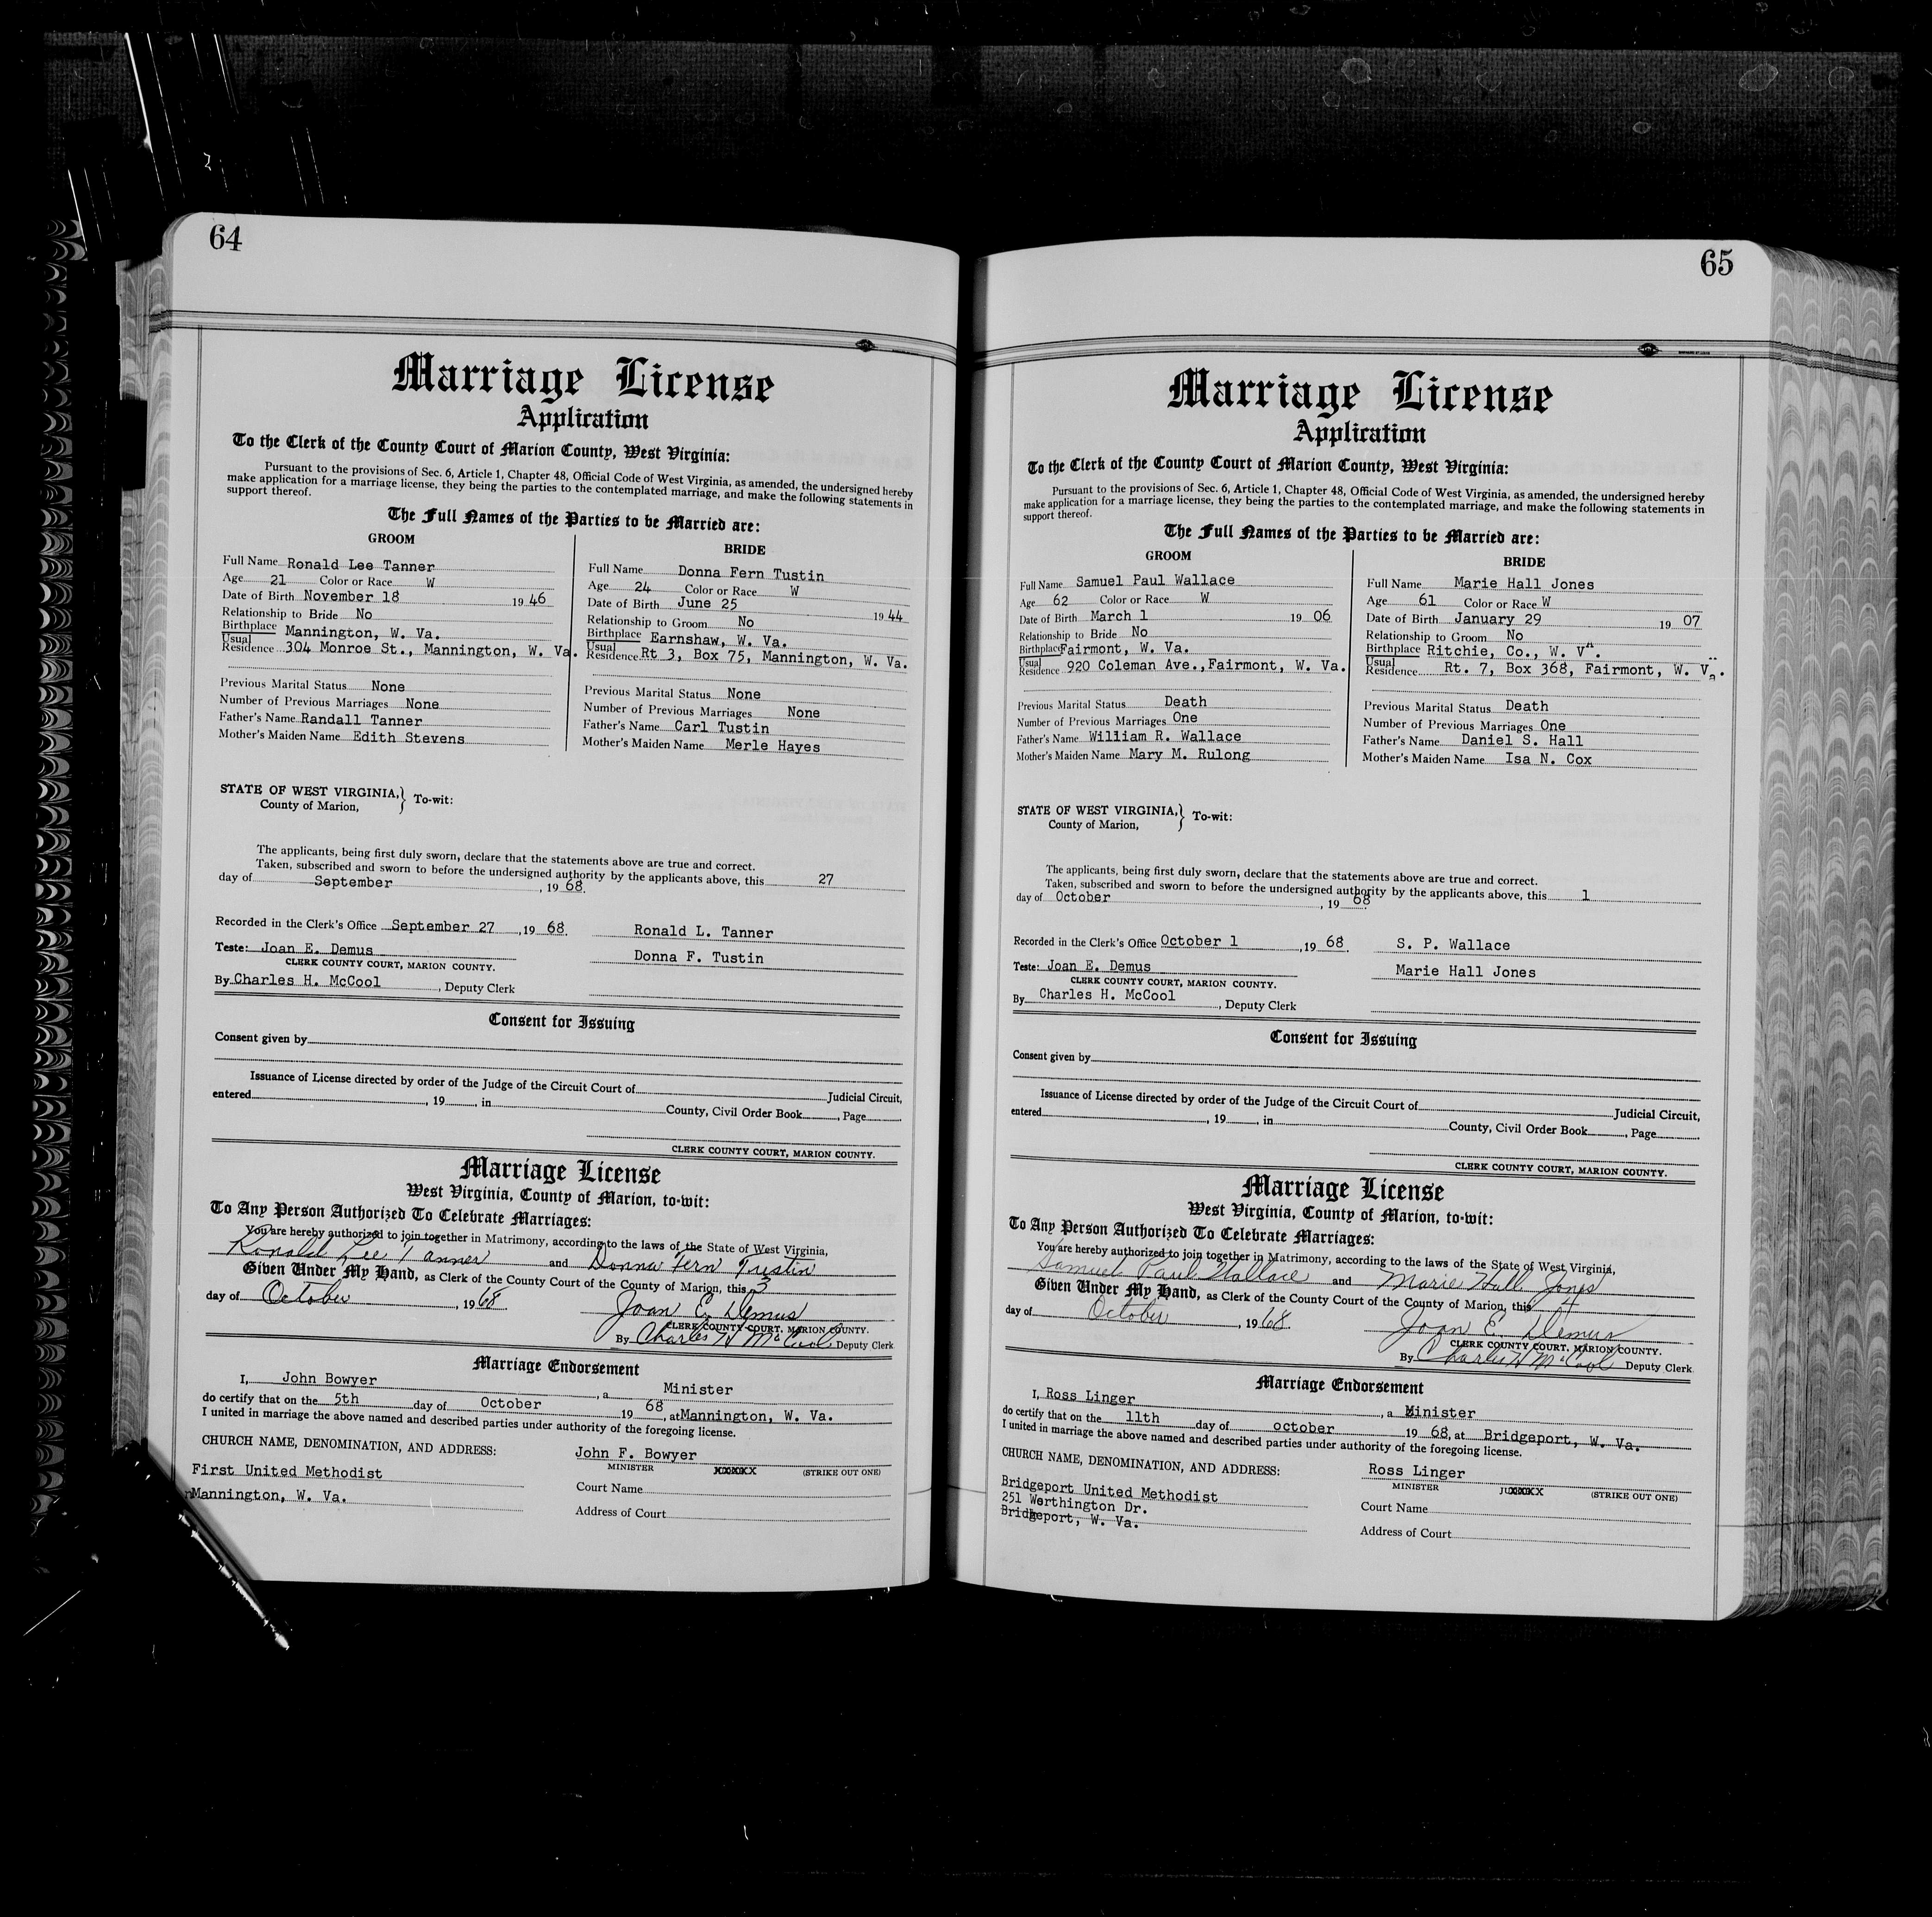 64
Marriage License
Application
To the Clerk of the County Court of Marion County, West Virginia:
Pursuant to the provisions of Sec. 6, Article 1, Chapter 48, Official Code of West Virginia, as amended, the undersigned hereby
make application for a marriage license, they being the parties to the contemplated marriage, and make the following statements in
support thereof.
The Full Names of the Parties to be Married are:
GROOM
Full Name Ronald Lee Tanner
Age 21 Color or Race W
Date of Birth November 18 1946
Relationship to Bride No
Birthplace Mannington, W. Va.
Usual
Residence 304 Monroe St., Mannington, W. Va.
Previous Marital Status None
Number of Previous Marriages None
Father's Name Randall Tanner
Mother's Maiden Name Edith Stevens
BRIDE
Full Name Donna Fern Tustin
Age 24 Color or Race W
Date of Birth June 25 1944
Relationship to Groom No
Birthplace Earnshaw, W. Va.
Usual
Residence Rt 3, Box 75, Mannington, W. Va.
Previous Marital Status None
Number of Previous Marriages None
Father's Name Carl Tustin
Mother's Maiden Name Merle Hayes
STATE OF WEST VIRGINIA, } To-wit:
County of Marion,
The applicants, being first duly sworn, declare that the statements above are true and correct.
Taken, subscribed and sworn to before the undersigned authority by the applicants above, this 27
day of September, 19 68.
Recorded in the Clerk's Office September 27, 19 68. Ronald L. Tanner
Teste: Joan E. Demus Donna F. Tustin
CLERK COUNTY COURT, MARION COUNTY.
By Charles H. McCool, Deputy Clerk
Consent for Issuing
Consent given by
Issuance of License directed by order of the Judge of the Circuit Court of Judicial Circuit,
entered, 19, in County, Civil Order Book, Page.
CLERK COUNTY COURT, MARION COUNTY.
Marriage License
West Virginia, County of Marion, to-wit:
To Any Person Authorized To Celebrate Marriages:
You are hereby authorized to join together in Matrimony, according to the laws of the State of West Virginia,
Ronald Lee Tanner and Donna Fern Tustin
Given Under My Hand, as Clerk of the County Court of the County of Marion, this 3
day of October, 1968. Joan E. Demus
CLERK COUNTY COURT, MARION COUNTY.
By Charles H McCool Deputy Clerk
Marriage Endorsement
I, John Bowyer, a Minister
do certify that on the 5th day of October 19 68, at Mannington, W. Va.
I united in marriage the above named and described parties under authority of the foregoing license.
CHURCH NAME, DENOMINATION, AND ADDRESS: John F. Bowyer
MINISTER (STRIKE OUT ONE)
First United Methodist Court Name
Mannington, W. Va. Address of Court
65
Marriage License
Application
To the Clerk of the County Court of Marion County, West Virginia:
Pursuant to the provisions of Sec. 6, Article 1, Chapter 48, Official Code of West Virginia, as amended, the undersigned hereby
make application for a marriage license, they being the parties to the contemplated marriage, and make the following statements in
support thereof.
The Full Names of the Parties to be Married are:
GROOM
Full Name Samuel Paul Wallace
Age 62 Color or Race W
Date of Birth March 1 19 06
Relationship to Bride No
Birthplace Fairmont, W. Va.
Usual
Residence 920 Coleman Ave., Fairmont, W. Va.
Previous Marital Status Death
Number of Previous Marriages One
Father's Name William R. Wallace
Mother's Maiden Name Mary M. Rulong
BRIDE
Full Name Marie Hall Jones
Age 61 Color or Race W
Date of Birth January 29 19 07
Relationship to Groom No
Birthplace Ritchie, Co., W. Va.
Usual
Residence Rt. 7, Box 368, Fairmont, W. Va.
Previous Marital Status Death
Number of Previous Marriages One
Father's Name Daniel S. Hall
Mother's Maiden Name Isa N. Cox
STATE OF WEST VIRGINIA, } To-wit:
County of Marion,
The applicants, being first duly sworn, declare that the statements above are true and correct.
Taken, subscribed and sworn to before the undersigned authority by the applicants above, this 1
day of October, 19 68
Recorded in the Clerk's Office October 1, 19 68. S. P. Wallace
Teste: Joan E. Demus Marie Hall Jones
CLERK COUNTY COURT, MARION COUNTY.
By Charles H. McCool, Deputy Clerk
Consent for Issuing
Consent given by
Issuance of License directed by order of the Judge of the Circuit Court of Judicial Circuit,
entered, 19, in County, Civil Order Book, Page.
CLERK COUNTY COURT, MARION COUNTY.
Marriage License
West Virginia, County of Marion, to-wit:
To Any Person Authorized To Celebrate Marriages:
You are hereby authorized to join together in Matrimony, according to the laws of the State of West Virginia,
Samuel Paul Wallace and Marie Hall Jones
Given Under My Hand, as Clerk of the County Court of the County of Marion, this
day of October, 1968. Joan E. Demus
CLERK COUNTY COURT, MARION COUNTY.
By Charles H McCool Deputy Clerk
Marriage Endorsement
I, Ross Linger, a Minister
do certify that on the 11th day of october 19 68, at Bridgeport, W. Va.
I united in marriage the above named and described parties under authority of the foregoing license.
CHURCH NAME, DENOMINATION, AND ADDRESS: Ross Linger
MINISTER (STRIKE OUT ONE)
Bridgeport United Methodist Court Name
251 Worthington Dr.
Bridgeport, W. Va. Address of Court